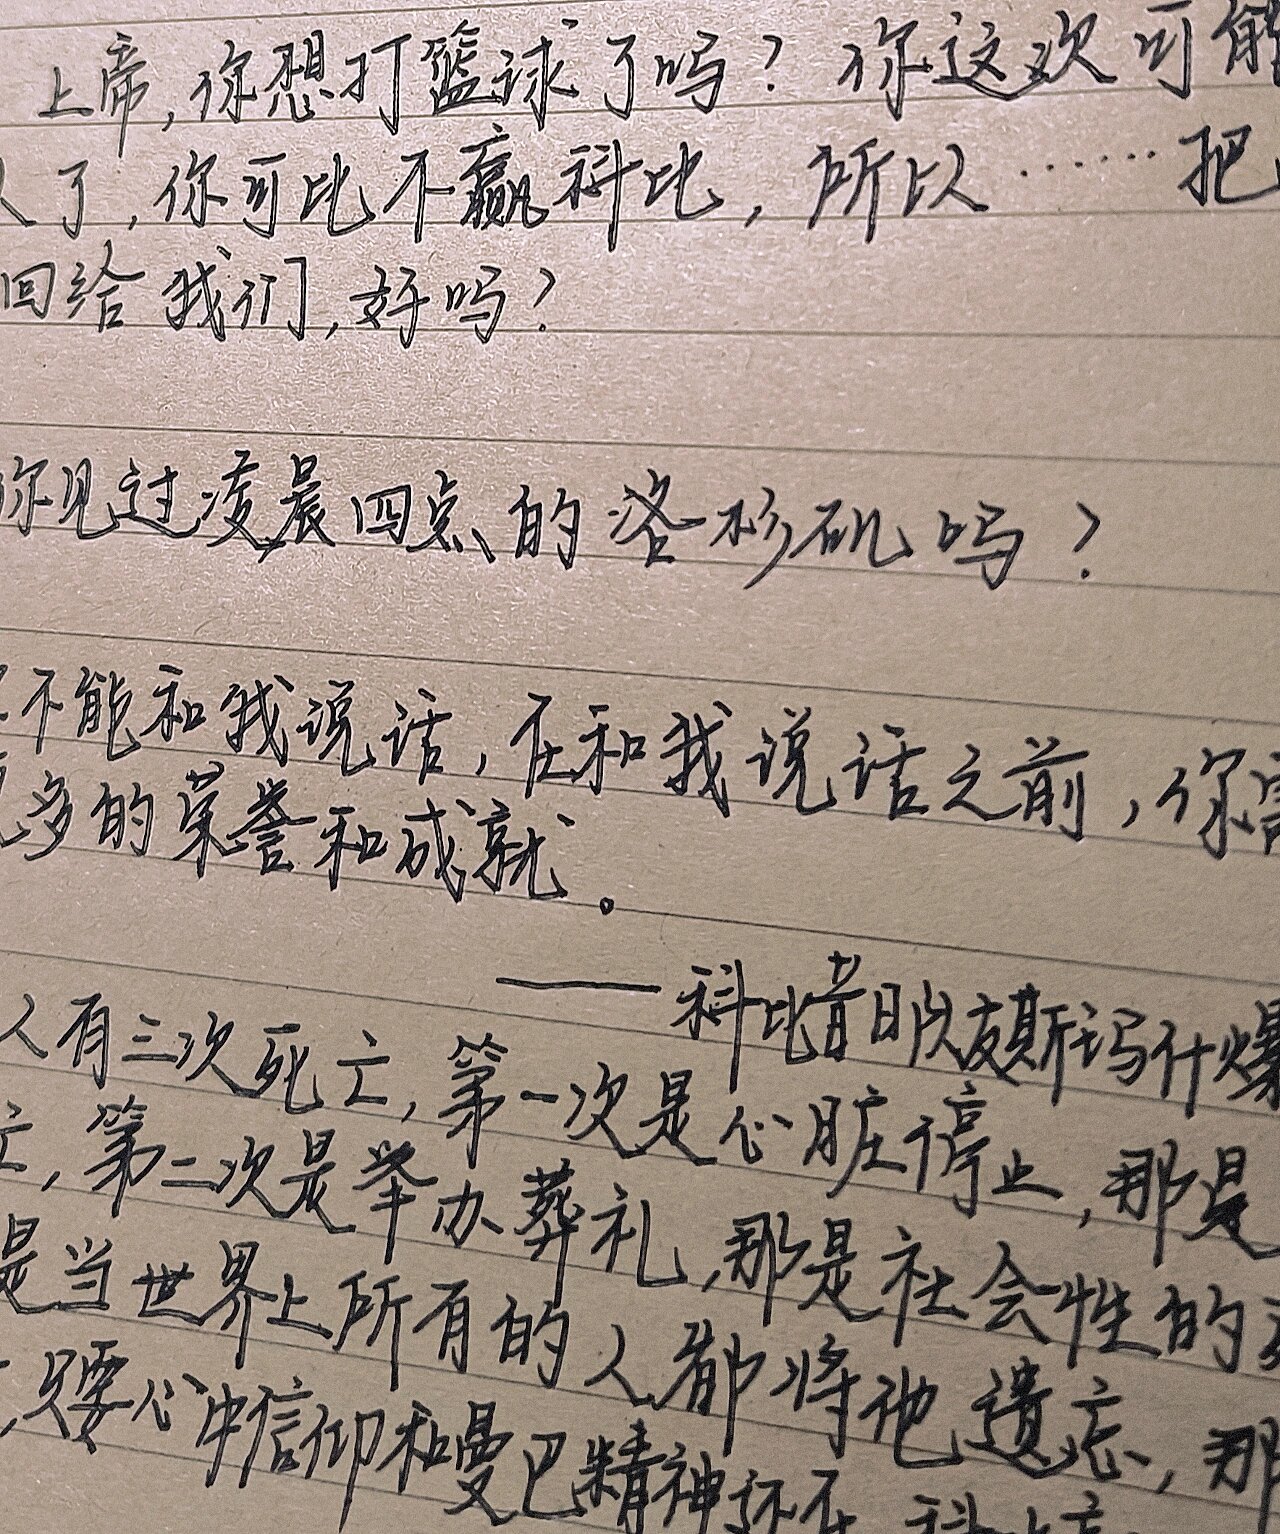 上帝,你想打篮球了吗?你这次可能
人了,你可比不赢科比,所以……把
回给我们,好吗?
你见过凌晨四点的洛杉矶吗?
不能和我说话,在和我说话之前,你需
多的荣誉和成就。
——科比昔日队友斯玛什爆
人有三次死亡,第一次是心脏停止,那是
亡,第二次是举办葬礼,那是社会性的
是当世界上所有的人都将他遗忘,那
,只要心中信仰和曼巴精神还在